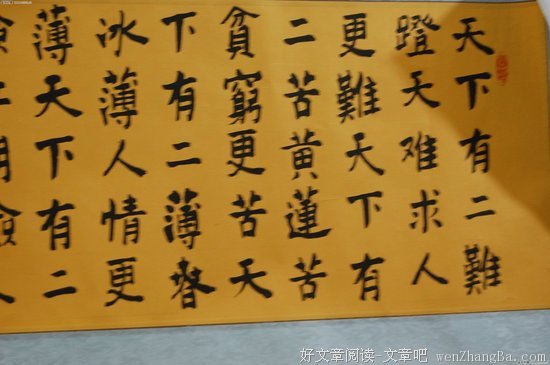 天下有二難
蹬天难求人
更難天下有
二苦黄蓮苦
貧窮更苦天
下有二薄春
冰薄人情更
薄天下有二
好文章阅读-文章吧 wenZhangBa.com